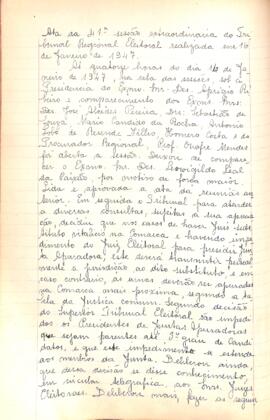 Ata da 41ª sessão extraordinária do Tri-
bunal Regional Eleitoral realizada em 16
de janeiro de 1947.
Às quatorze horas do dia 16 de Ja-
neiro de 1947, na sala das sessões, sob a
Presidencia do Exmo. Snr. Des.
beiro e comparecimento dos Exmos. Snrs:
Des. José Alcides Pereira, Drs. Sebastião de
Souza, Mario Candido da Rocha, Antonio
Lobo de Resende Filho, Homero Costa e do
Procurador Regional, Prof. Onofre Mendes
foi aberta a sessão. Deixou de compare-
cer o Exmo. Snr. Des. Leal
da Paixão, por motivo de força maior.
Lida e aprovada a ata da reunião an-
terior. Em seguida o Tribunal, para atender
a diversas consultas, sujeitas à sua apreci-
ação, decidiu que nos casos de haver Juiz subs-
tituto vitalicio na Comarca e havendo impe-
dimento do Juiz Eleitoral para presidir Jun-
ta Apuradora, este deverá transmitir
mente a jurisdição ao dito substituto, e em
caso contrario, as urnas deverão ser apuradas
na Comarca mais proxima, segundo a ta-
bela da Justiça comum. Segundo decisão
do Superior Tribunal Eleitoral são impedi-
dos os Presidentes de Juntas Apuradoras
que sejam parentes até 3º grau de Candi-
datos, e que este impedimento é extensivo
aos membros da Junta. Deliberou ainda
que dessa decisão se désse conhecimento,
em circular telegrafica, aos Snrs. Juizes
Eleitorais. Deliberou mais, fazer as seguin